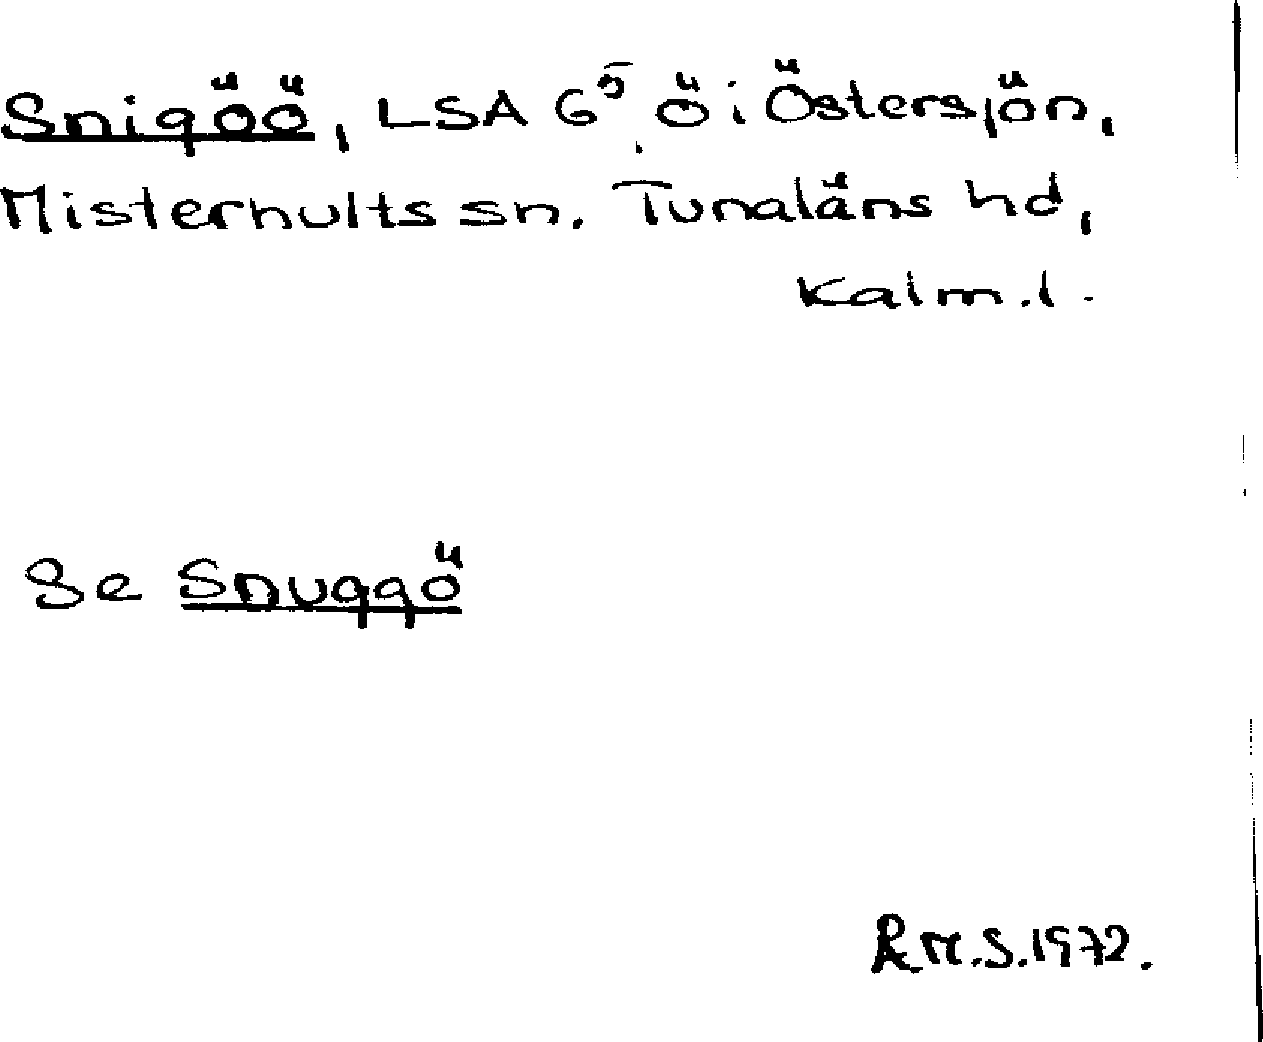 Snigöö, LSA G⁵, ö i Östersjön,
Misterhults sn. Tunaläns hd,
Kalm.l.
Se Snuggö
R.M.S.1972.